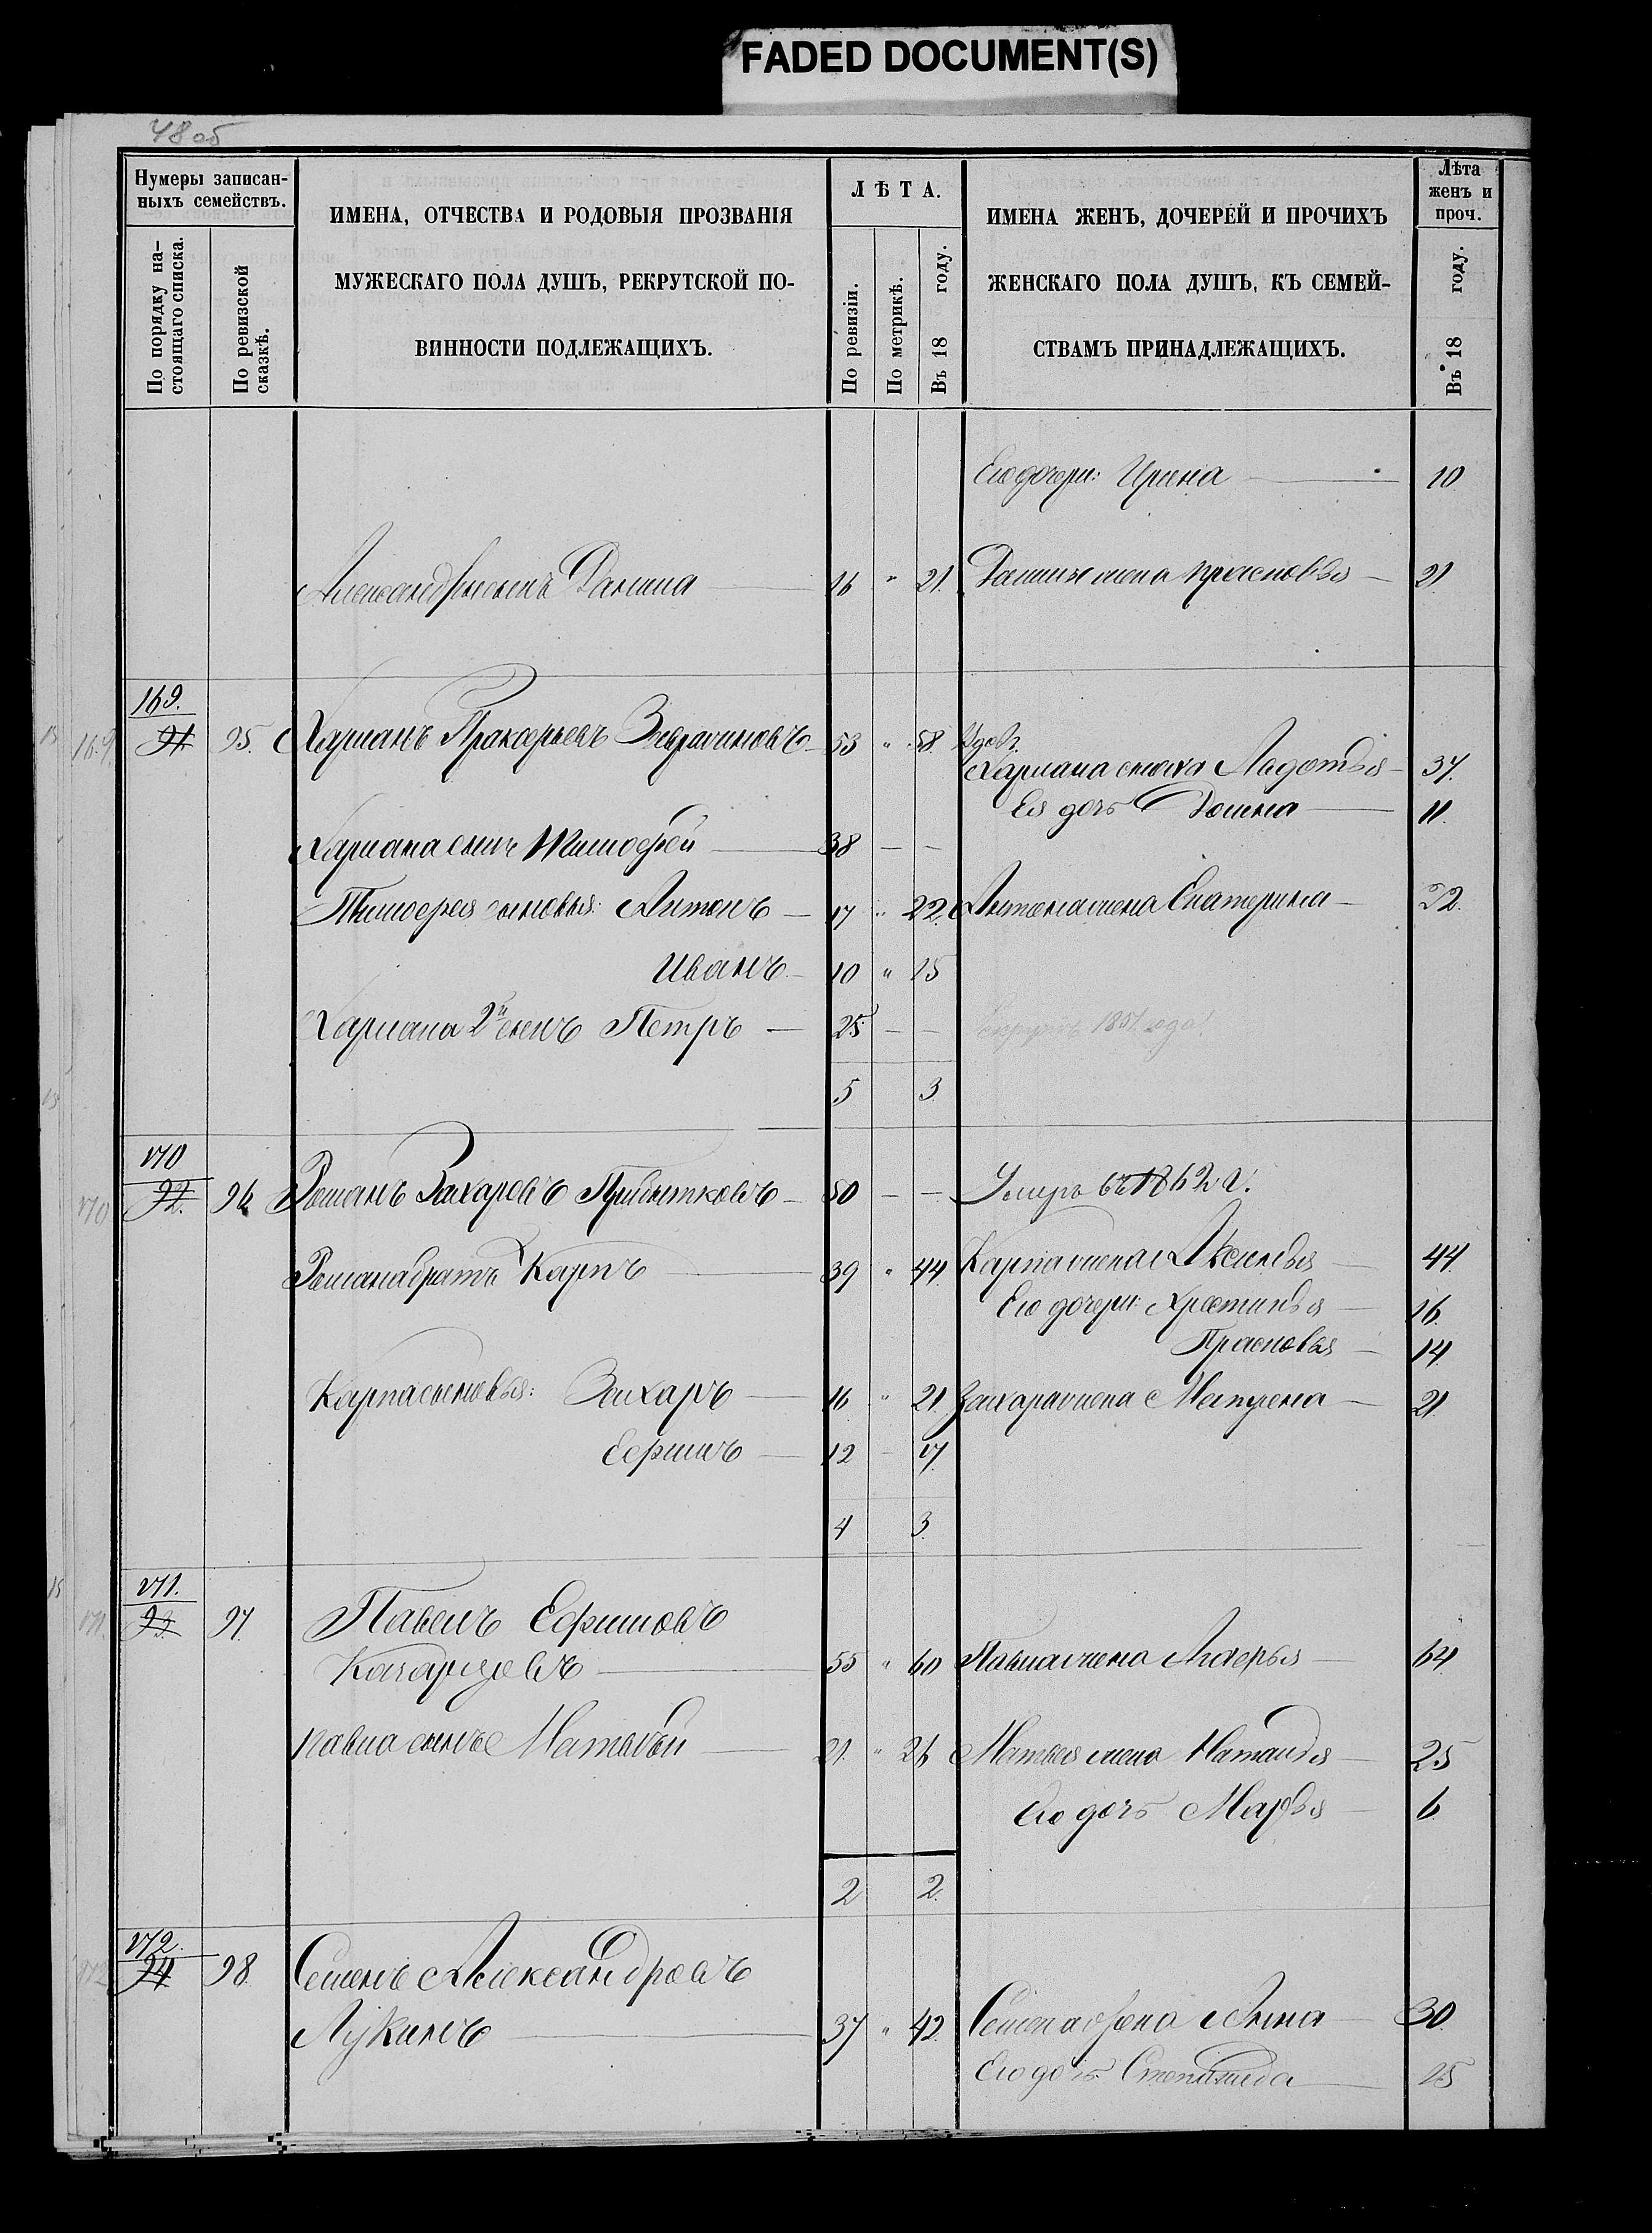 FADED DOCUMENT(S)
48 об
Нумеры записан-
ныхъ семействъ.
По порядку на-
стоящаго списка.
По ревизской
сказкѣ.
ИМЕНА, ОТЧЕСТВА И РОДОВЫЯ ПРОЗВАНІЯ
МУЖЕСКАГО ПОЛА ДУШЪ, РЕКРУТСКОЙ ПО-
ВИННОСТИ ПОДЛЕЖАЩИХЪ.
ЛѢТА.
По ревизіи.
По метрикѣ.
Въ 18 году.
ИМЕНА ЖЕНЪ, ДОЧЕРЕЙ И ПРОЧИХЪ
ЖЕНСКАГО ПОЛА ДУШЪ, КЪ СЕМЕЙ-
СТВАМЪ ПРИНАДЛЕЖАЩИХЪ.
Лѣта
женъ и
проч.
Въ 18 году.
Его дочери: Ирина 10
Данила 16 " 21. жена Прасковья 21
169.
91. 95. Прокофьевъ 53 " 58. Вдов.
37.
Ея дочь Домна 11.
сынъ Тимофей 38 — —
Тимофея сыновья: Антонъ 17 " 22. Антона жена Екатерина 22.
Иванъ 10 " 15
2й сынъ Петръ 25 — — 1857 года
5 3.
170
92. 96 Романъ Захаровъ Прибытковъ 50 — — Умеръ въ 1862 г.
Романа братъ Карпъ 39 " 44. Карпа жена Аксинья 44.
Его дочери: Христинья 16.
Прасковья 14.
Карпа сыновья: Захаръ 16 " 21. Захара жена Матрена 21.
Ефимъ 12 — 17.
4 3.
171.
93. 97. Павелъ Ефимовъ
55 " 60 Павла жена 64
Павла сынъ Матвѣй 21. " 26 Матвея жена Наталья 25
Его дочь Марья 6.
2 2.
172.
94 98. Семенъ Александровъ
Лукинъ 37 " 42. Семена жена Анна 30.
Его дочь Степанида 15